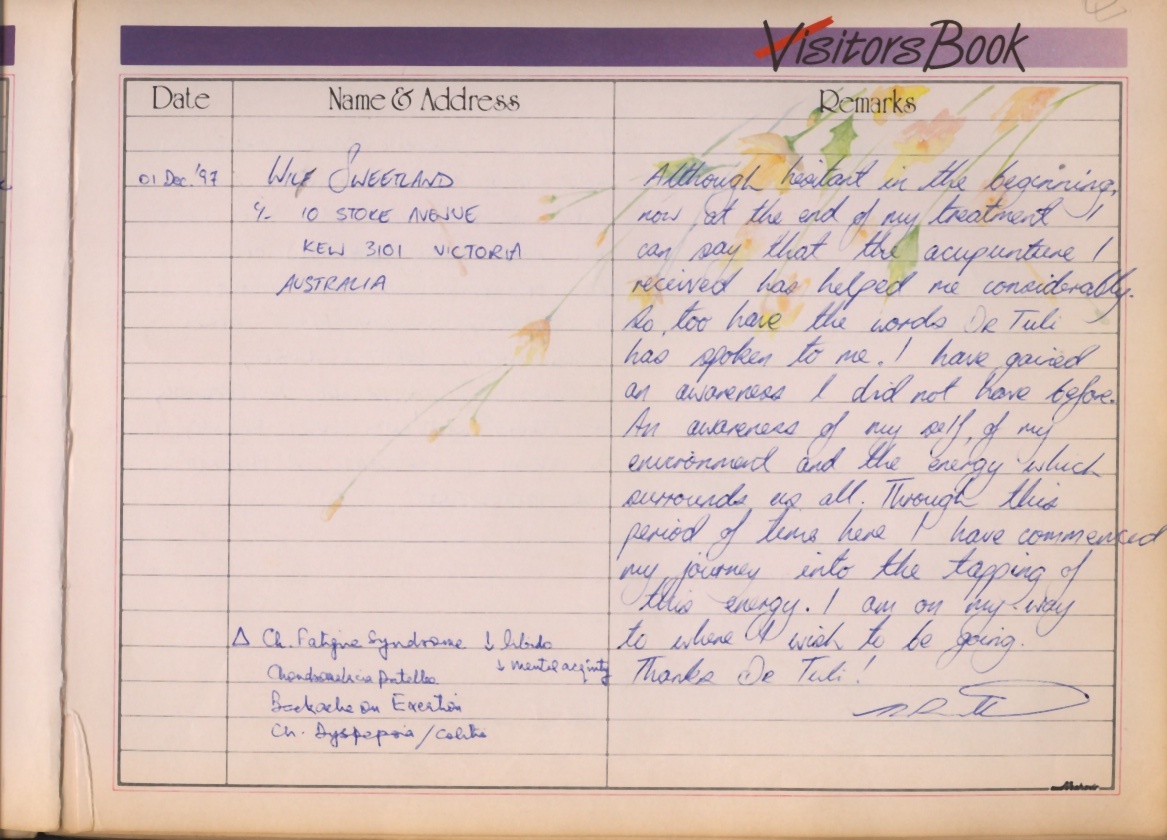 Visitors Book
Date Name & Address Remarks
01 Dec. '97 WILF SWEETLAND
c/- 10 STOKE AVENUE
KEW 3101 VICTORIA
AUSTRALIA
Although hesitant in the beginning,
now, at the end of my treatment I
can say that the acupunture I
received has helped me considerably.
So, too have the words Dr Tuli
has spoken to me. I have gained
an awareness I did not have before.
An awareness of my self, of my
environment and the energy which
surrounds us all. Through this
period of time here I have commenced
my journey into the tapping of
this energy. I am on my way
to where I wish to be going.
Thanks Dr Tuli!
Δ Ch. Fatigue Syndrome ↓ libido
↓ mental acquity
Chondromalacia Patella
Backache on Exertion
Ch. Dyspepsia / Colitis